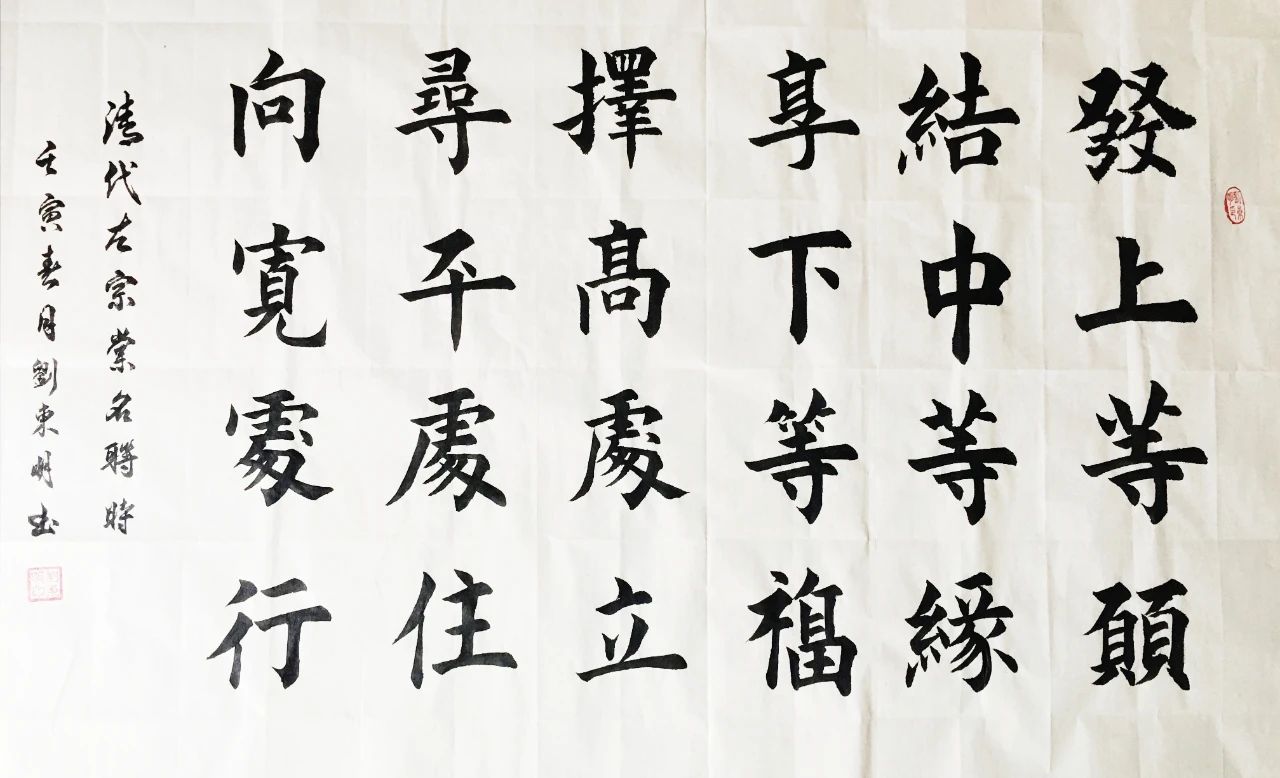 發上等願
結中等緣
享下等福
擇高處立
尋平處住
向寬處行
清代左宗棠名聯時
壬寅春月劉東明書